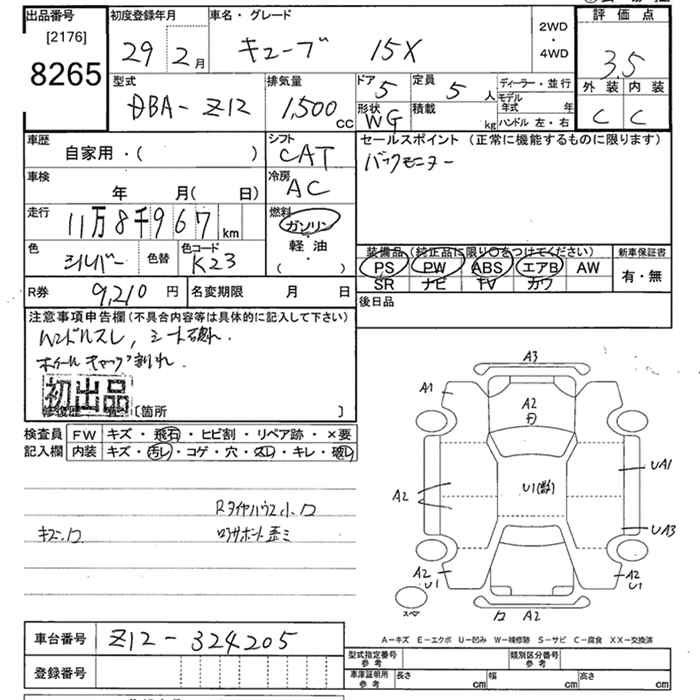 出品番号
[2176]
8265
初度登録年月
29 2月
車名・グレード
キューブ 15X
2WD
・
4WD
評価点
3.5
外装 内装
C C
型式
DBA-Z12
排気量
1,500 cc
ドア 5
定員 5 人
形状 WG
積載 kg
ディーラー・並行
モデル年式 年
ハンドル 左・右
車歴
自家用・( )
シフト
CAT
車検
年 月( 日)
冷房
AC
走行
11万8千967 km
燃料
ガソリン
軽油
・
( )
色
シルバー
色替
色コード
K23
R券 9,210 円
名変期限 月 日
セールスポイント (正常に機能するものに限ります)
バックモニター
装備品 (純正品に限り○をつけてください)
PS PW ABS エアB AW
SR ナビ TV カワ
新車保証書
有・無
後日品
注意事項申告欄(不具合内容等は具体的に記入して下さい)
ハンドルスレ, シート破れ.
ホイールキャップ割れ.
初出品
[箇所 ]
検査員記入欄
FW キズ・飛石・ヒビ割・リペア跡・×要
内装 キズ・汚レ・コゲ・穴・スレ・キレ・破レ
Rタイヤハウス小凹
キズ凹
ロアサポート歪ミ
A3
A1
A2
U1
UA1
A2
UA3
A2
U1
A2
U1
スペア
凹 A2
A-キズ E-エクボ U-凹み W-補修跡 S-サビ C-腐食 XX-交換済
車台番号 Z12-324205
登録番号
型式指定番号
参考
類別区分番号
参考
車庫証明用
参考
長さ cm
幅 cm
高さ cm